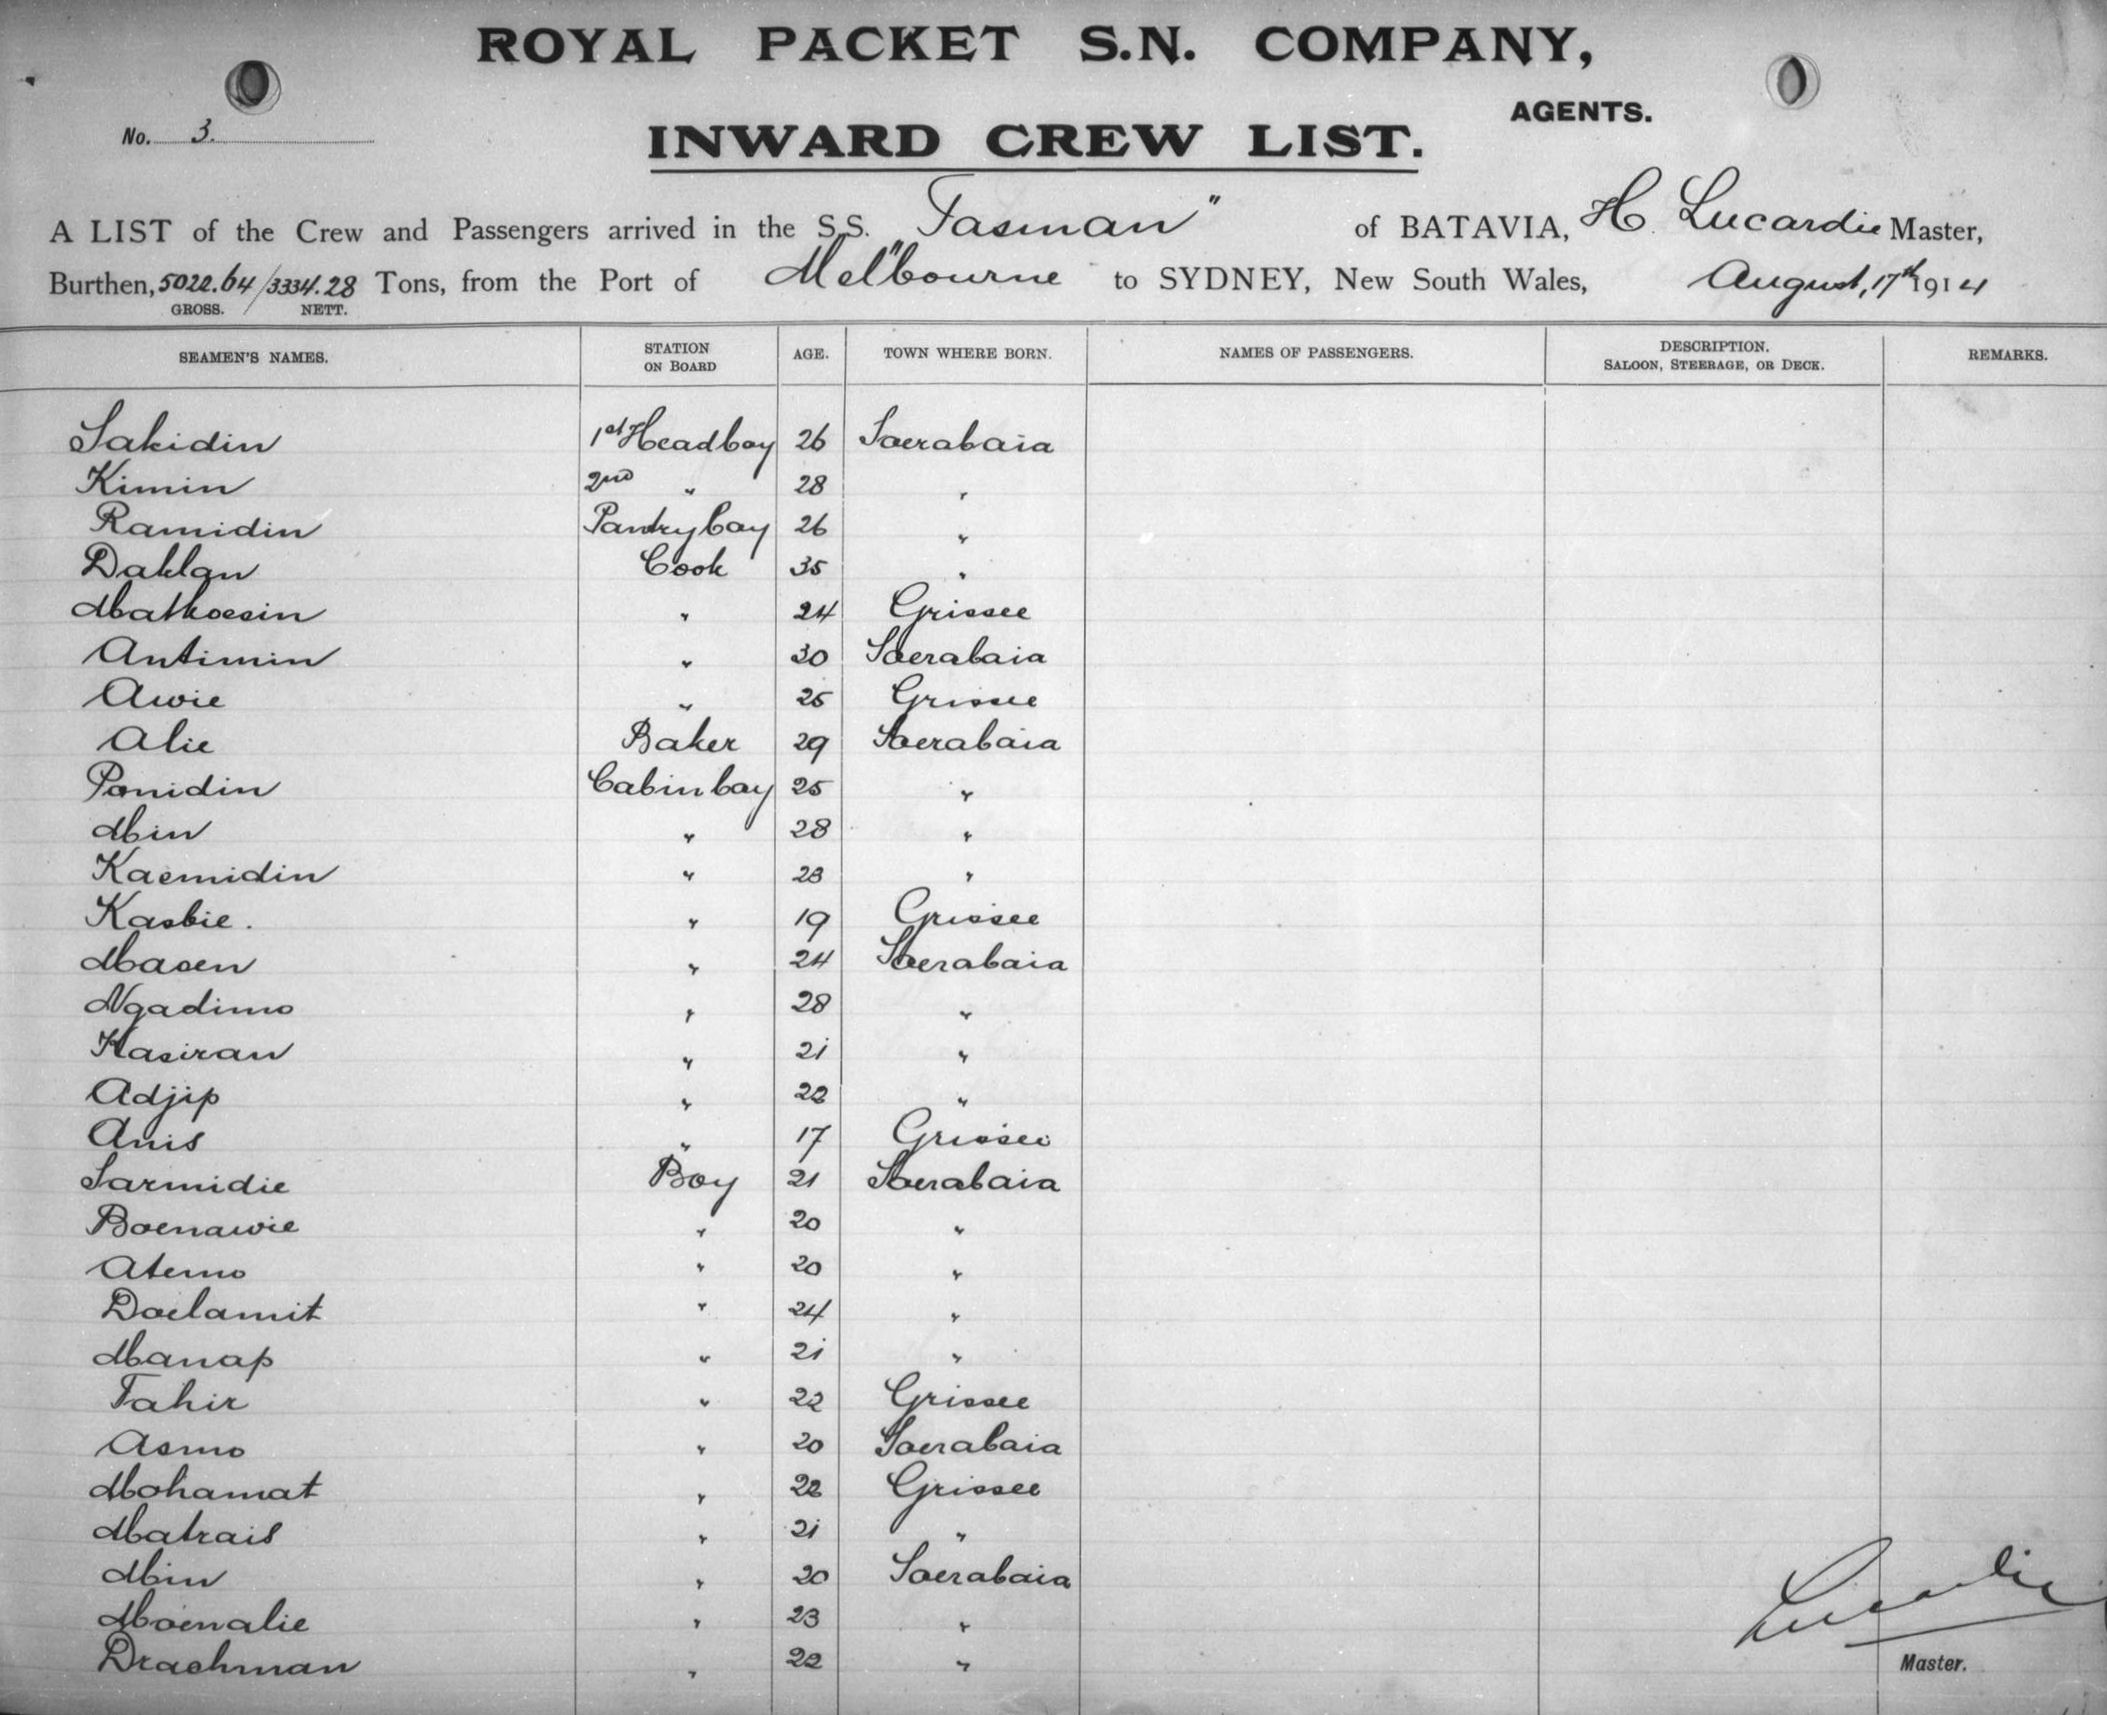 ROYAL PACKET S.N. COMPANY,
AGENTS.
No. 3.
INWARD CREW LIST.
A LIST of the Crew and Passengers arrived in the S.S. "Tasman" of BATAVIA, H. Lucardie Master,
Burthen, 5022.64/3334.28 Tons, from the Port of Melbourne to SYDNEY, New South Wales, August, 17th 1914
GROSS. NETT.
SEAMEN'S NAMES. STATION ON BOARD AGE. TOWN WHERE BORN. NAMES OF PASSENGERS. DESCRIPTION. SALOON, STEERAGE, OR DECK. REMARKS.
Sakidin 1st Headboy 26 Soerabaia
Kimin 2nd " 28 "
Ramidin Pantryboy 26 "
Daklan Cook 35 "
Matkoesin " 24 Grissee
Antimin " 30 Soerabaia
Awie " 25 Grissee
Alie Baker 29 Soerabaia
Ponidin Cabinboy 25 "
Min " 28 "
Kaemidin " 23 "
Kasbie. " 19 Grissee
Masen " 24 Soerabaia
Ngadimo " 28 "
Kasiran " 21 "
Adjip " 22 "
Anis " 17 Grissee
Sarmidie Boy 21 Soerabaia
Boenawie " 20 "
Atemo " 20 "
Doelamit " 24 "
Manap " 21 "
Tahir " 22 Grissee
Asmo " 20 Soerabaia
Mohamat " 22 Grissee
Matrais " 21 "
Min " 20 Soerabaia
Moenalie " 23 "
Drachman " 22 "
Lucardie
Master.